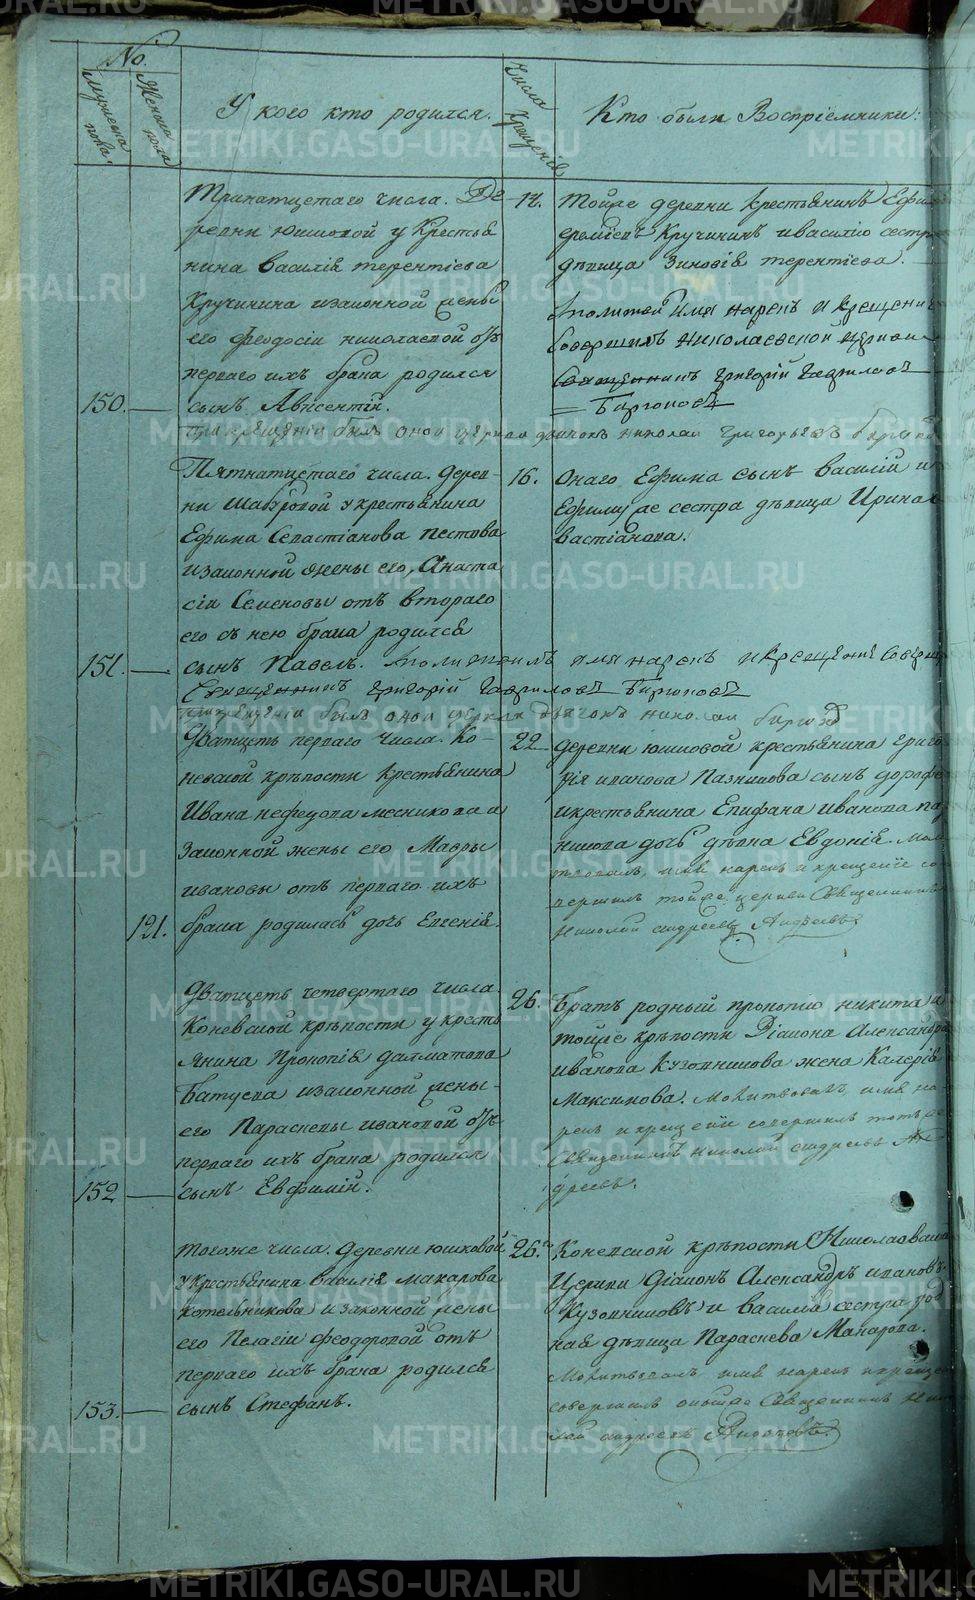 No.
Мужеска пола.
Женска пола
У кого кто родился.
Числа Крещенія
Кто были Воспріемники:
Тринатцетаго числа. Де
ревни Юшковой у Крестья
нина Василія терентіева
Кручинина и законной жены
его Феодосіи николаевой отъ
перваго ихъ брака родился
150.
сынъ Авксентій.
17.
тойже деревни крестьянинъ
Кручининъ и василію сестра
дѣвица Зиновія терентіева.
Молитвой имя нарекъ и крещеніе
Совершилъ Николаевской церкви
Священникъ григорій гаврилов
Бирюков
при крещеніи былъ оной церкви дьячокъ николай григорьевъ
Пятнатцетаго числа. дерев-
ни Шабуровой у крестьянина
Ефима Севастіанова пестова
и законной жены его, Анаста
сіи Семеновы отъ втораго
его съ нею брака родился
151.
сынъ Павелъ. молитвилъ имя нарекъ и крещеніе совершилъ
Священникъ григорій гаврилов Бирюков
при крещеніи былъ оной церкви дьячокъ николай
16.
Онаго Ефима сынъ василій и
Ефиму же сестра дѣвица Ирина
вастіанова.
дватцеть перваго числа. Ко-
невской крѣпости крестьянина
Ивана нефедова месникова и
законной жены его Мавры
ивановы отъ перваго ихъ
121.
брака родилась дочь Евгенія.
22
деревни юшковой крестьянина григо
рія иванова Пазникова сынъ дорофей
и крестьянина Епифана иванова
никова дочь дѣвка Евдокія. Мол
твовалъ, имя нарекъ и крещеніе со
вершилъ тойже церкви Священникъ
николай андреевъ
дватцеть четвертаго числа
Коневской крѣпости у кресть
янина Прокопія далматова
Батуева и законной жены-
его Параскевы ивановой отъ
перваго ихъ брака родился
152
сынъ Евфимій.
26.
Братъ родный прокопію никита и
тойже крѣпости Діакона Александра
иванова Кузовникова жена Калерія
Максимова. Молитвовалъ, имя на
рекъ и крещеніе совершилъ тотъ же
Священникъ Николай андреевъ Ан
дреевъ.
тогоже числа. деревни юшковой
у крестьянина василія макарова
котельникова и законной жены
его Пелагіи феодоровой отъ
перваго ихъ брака родился
153.
сынъ Стефанъ.
26.
Коневской крѣпости Николаевской
Церкви Діаконъ Александръ ивановъ
Кузовниковъ и василія сестра род
ная дѣвица Параскева Макарова.
Молитвовалъ имя нарекъ и крещеніе
совершилъ онойже Священникъ Ник
лай андреевъ
METRIKI.GASO-URAL.RU